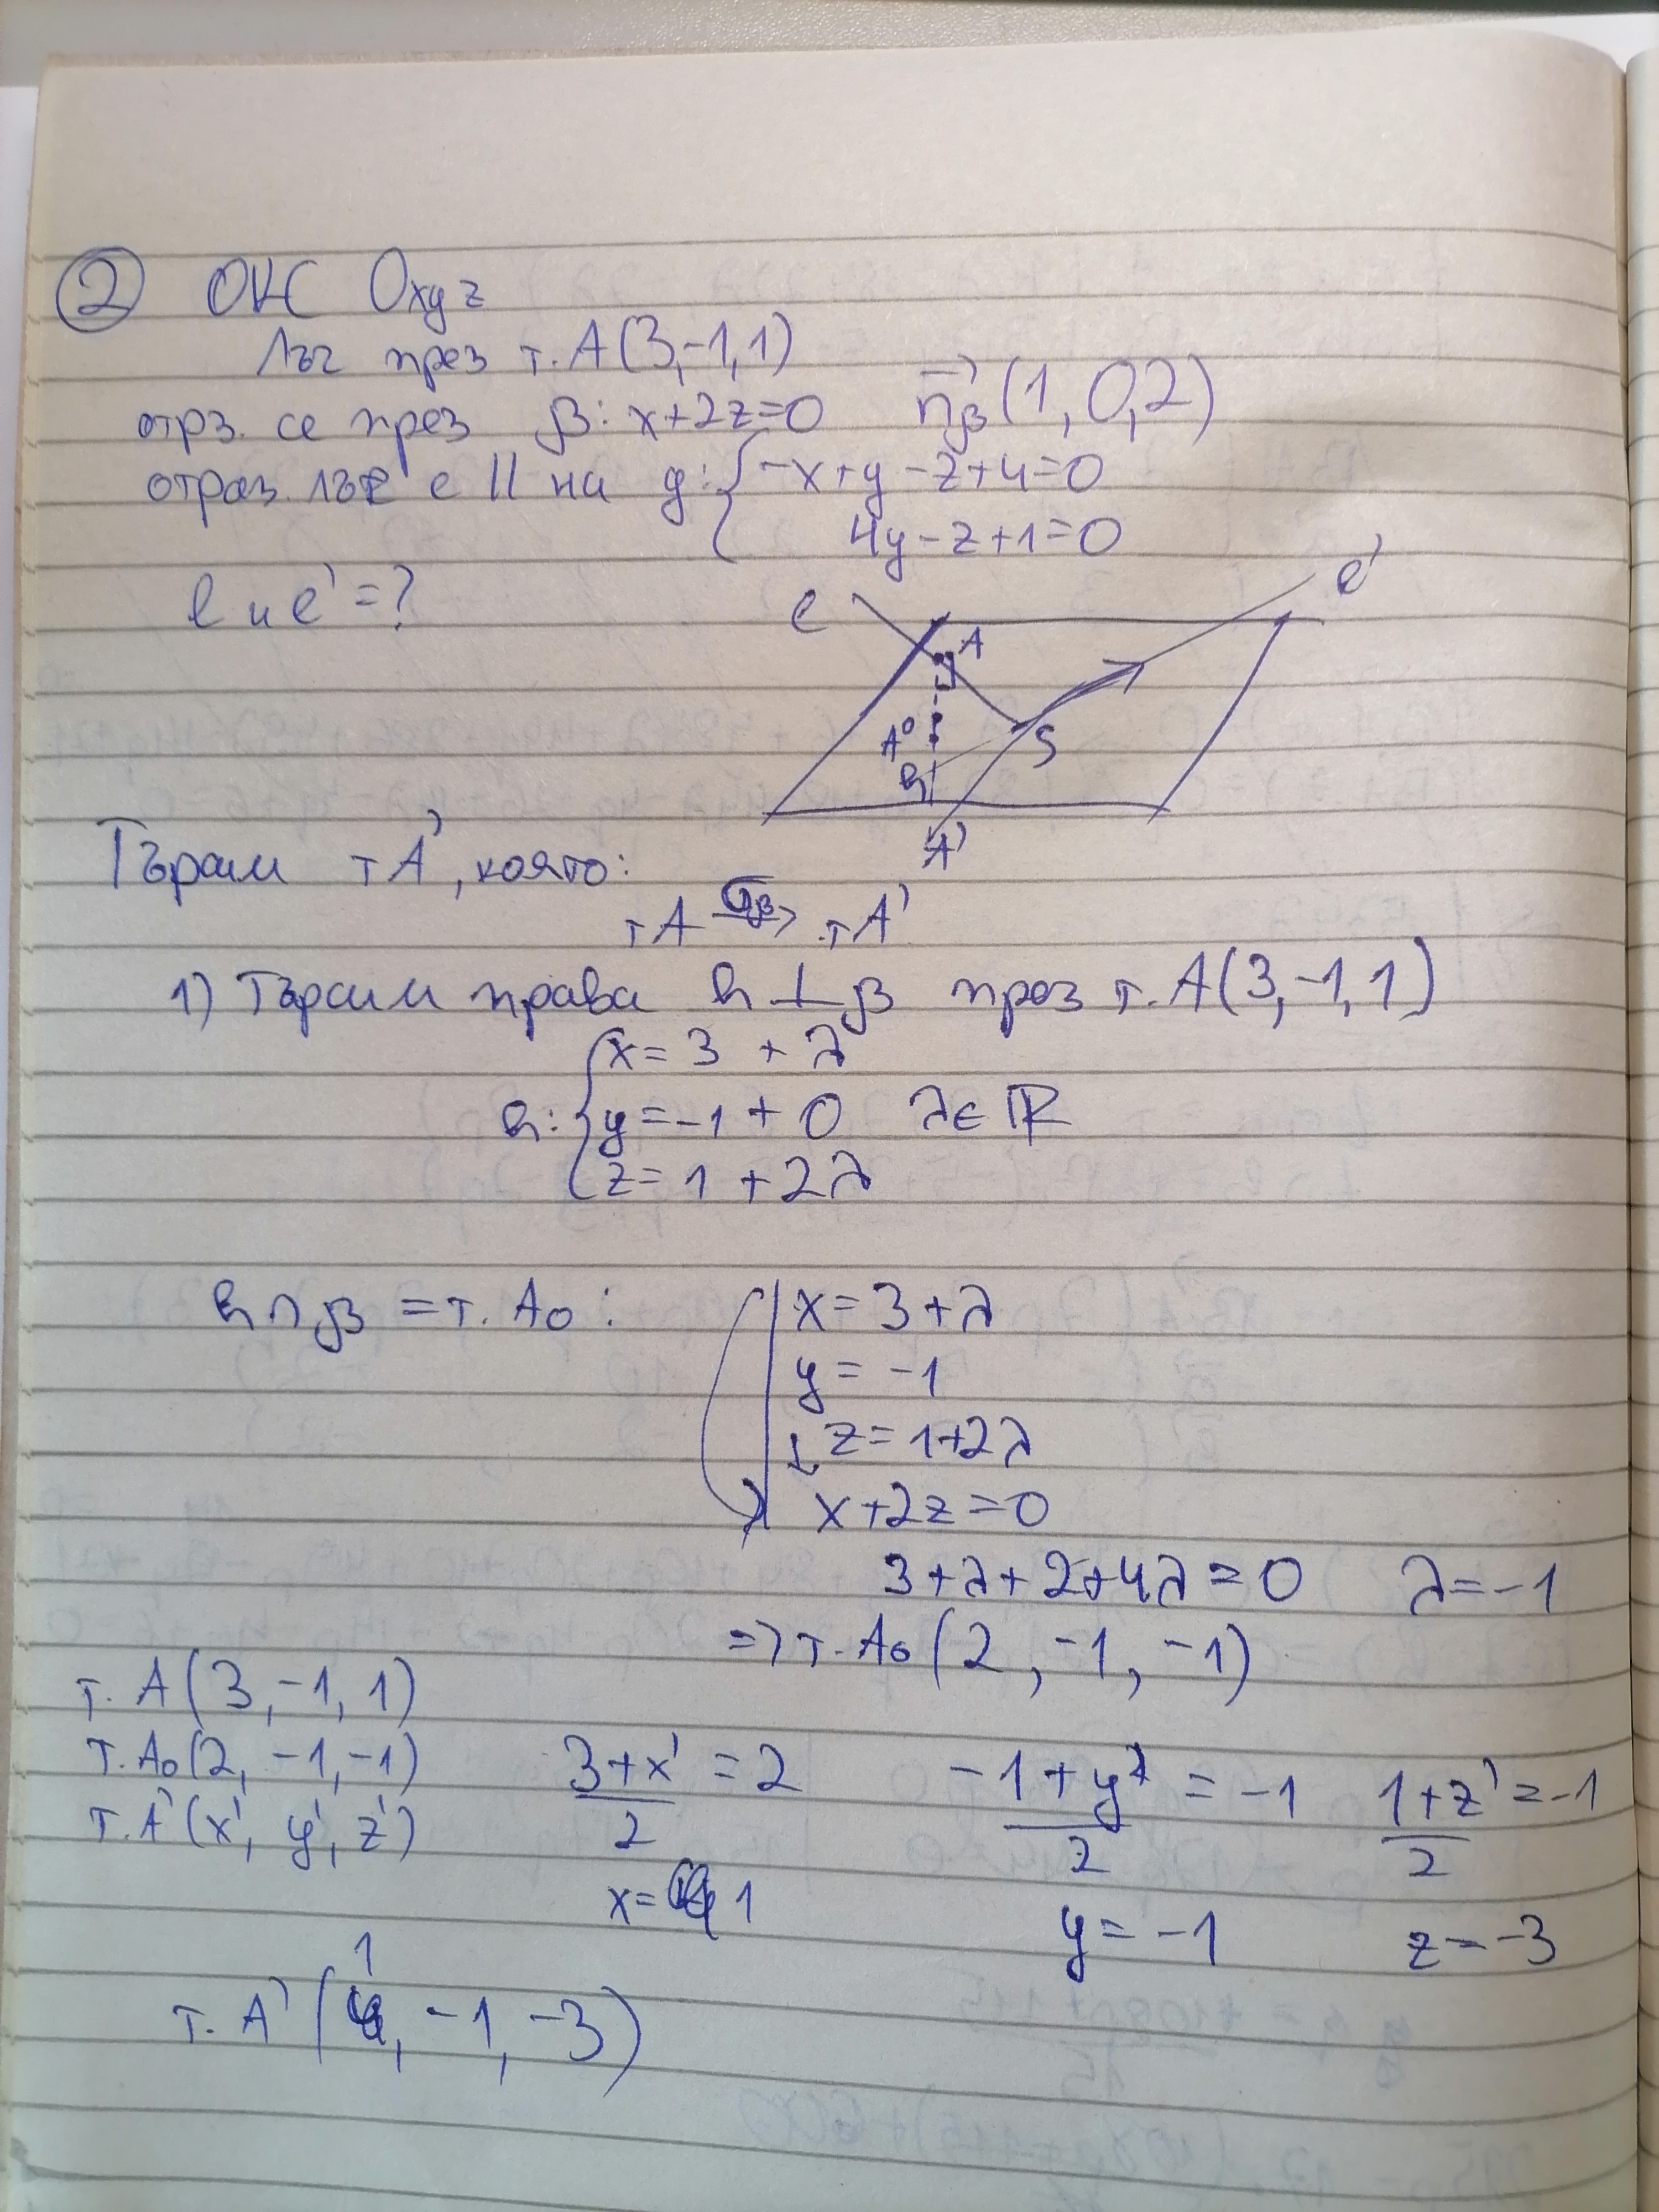 ② ОКС Oxyz
Лъч през т. A(3,-1,1)
отрз. се през β: x+2z=0 n⃗β(1,0,2)
отраз. лъч е || на g: { -x+y-z+4=0
4y-z+1=0
l и l' = ?
l l'
A
A⁰ S
h
A'
Търсим т A', която:
т A →(σβ) т A'
1) Търсим права h ⊥ β през т. A(3,-1,1)
x = 3 + λ
h: { y = -1 + 0 λ ∈ ℝ
z = 1 + 2λ
h ∩ β = т. A₀ : x = 3+λ
y = -1
z = 1+2λ
x+2z=0
3+λ+2+4λ=0 λ=-1
=> т. A₀(2, -1, -1)
т. A(3,-1,1)
т. A₀(2, -1, -1) (3+x')/2 = 2 (-1+y')/2 = -1 (1+z')/2 = -1
т. A'(x', y', z')
x = 1 y = -1 z = -3
т. A'(1, -1, -3)